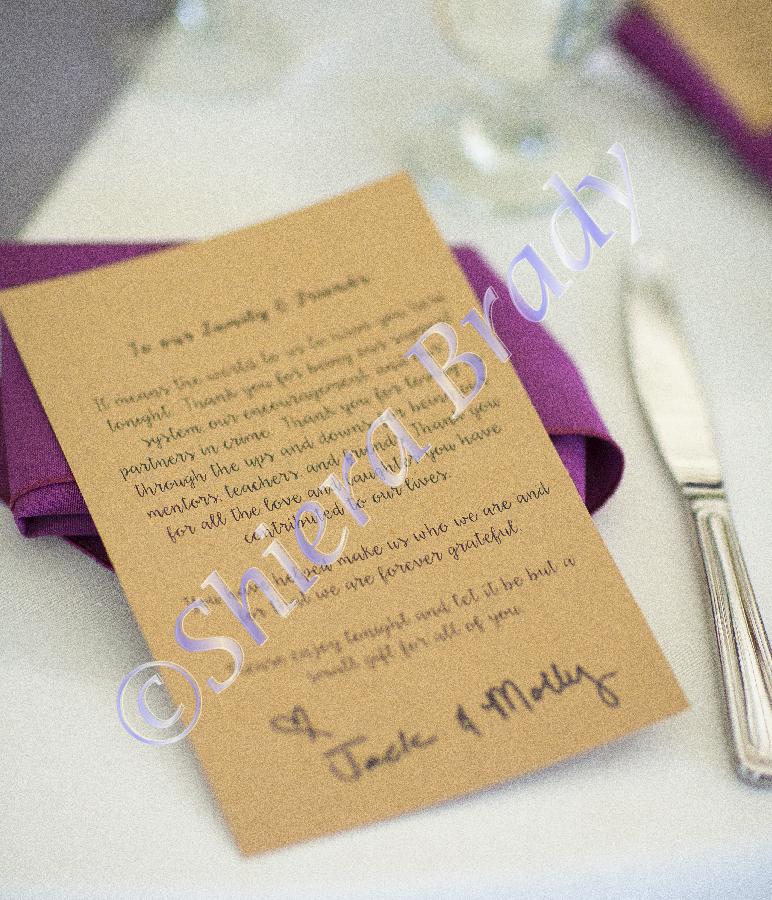 To our Family & Friends
It means the world to us to have you here
tonight. Thank you for being our support
system, our encouragement and
partners in crime. Thank you for loving
through the ups and downs, for being
mentors, teachers, and friends. Thank you
for all the love and laughter you have
contributed to our lives.
You have helped make us who we are and
for that we are forever grateful.
Please enjoy tonight and let it be but a
small gift for all of you.
♡
Jack & Molly
©Shiera Brady